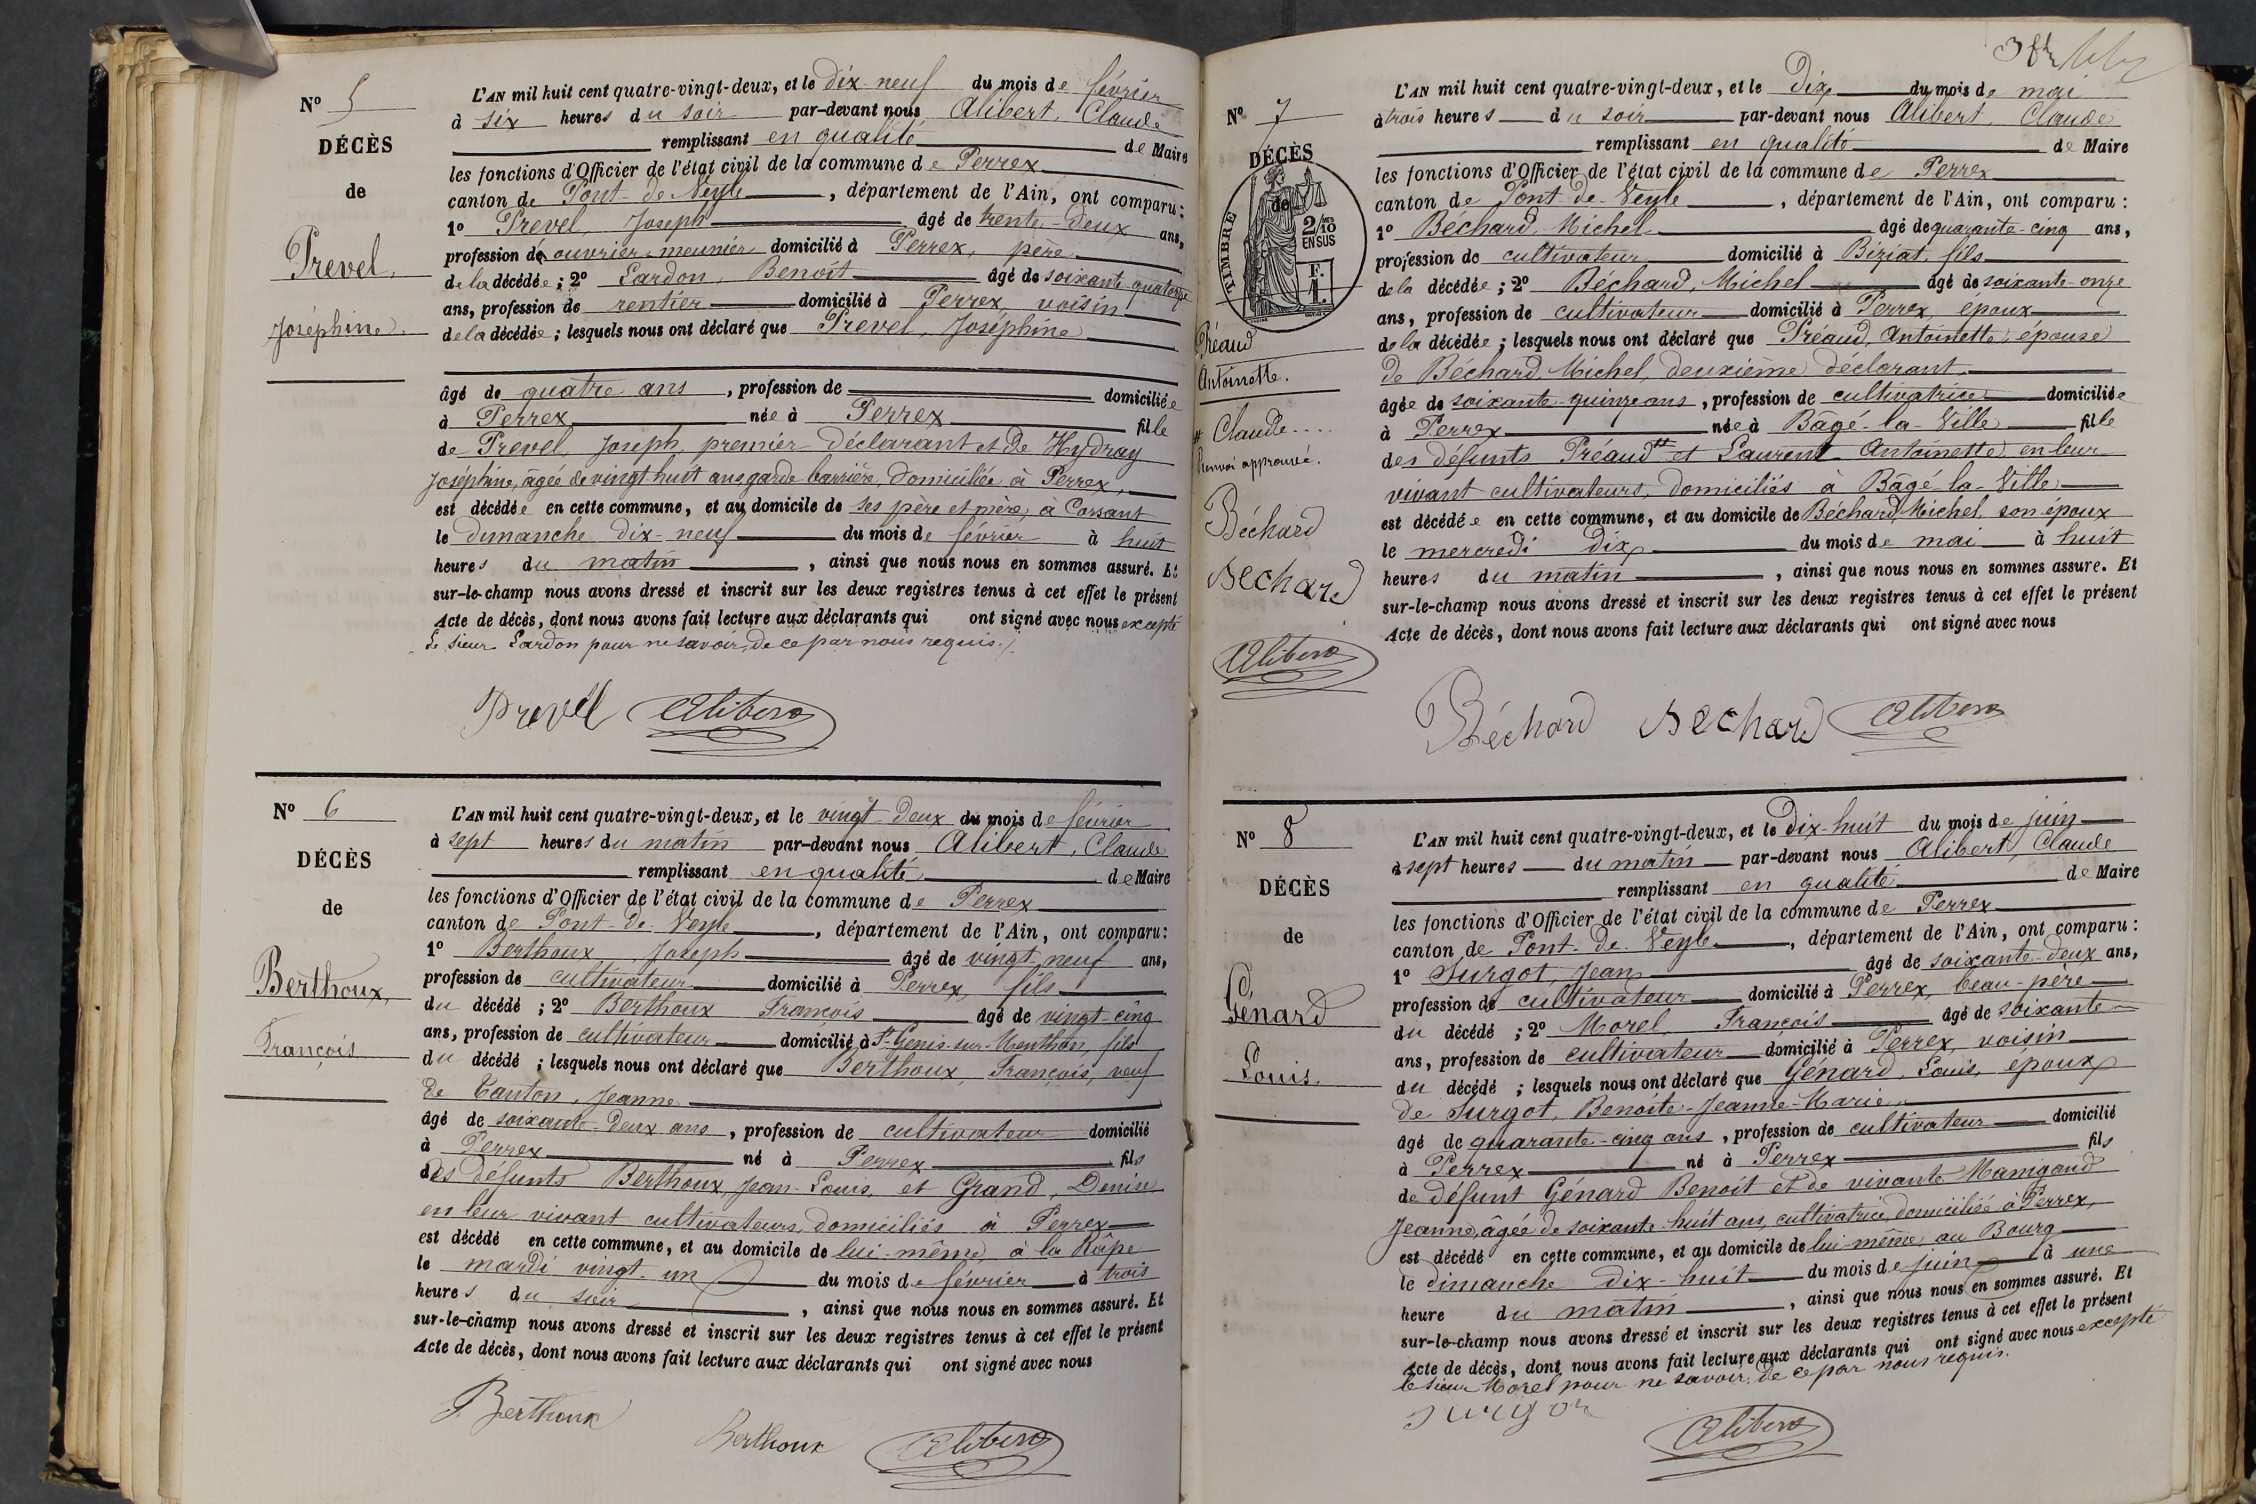 N° 5
DÉCÈS
de
Prevel,
Joséphine.
L'AN mil huit cent quatre-vingt-deux, et le dix-neuf du mois de février
à six heures du soir par-devant nous Alibert, Claude
remplissant en qualité de Maire
les fonctions d'Officier de l'état civil de la commune de Perrex
canton de Pont-de-Veyle, département de l'Ain, ont comparu :
1° Prevel, Joseph âgé de trente-deux ans,
profession de ouvrier meunier domicilié à Perrex, père
de la décédée ; 2° Lardon, Benoît âgé de soixante-quatorze
ans, profession de rentier domicilié à Perrex, voisin
de la décédée ; lesquels nous ont déclaré que Prevel, Joséphine
âgé de quatre ans, profession de domiciliée
à Perrex née à Perrex fille
de Prevel, Joseph, premier déclarant et de Hydray
Joséphine, âgée de vingt huit ans garde barrière, domiciliée à Perrex,
est décédée en cette commune, et au domicile de ses père et mère, à Corsant
le dimanche dix-neuf du mois de février à huit
heures du matin, ainsi que nous nous en sommes assuré. Et
sur-le-champ nous avons dressé et inscrit sur les deux registres tenus à cet effet le présent
Acte de décès, dont nous avons fait lecture aux déclarants qui ont signé avec nous excepté
le sieur Lardon pour ne savoir, de ce par nous requis.
Prevel Alibert
N° 6
DÉCÈS
de
Berthoux,
François
L'AN mil huit cent quatre-vingt-deux, et le vingt-deux du mois de février
à sept heures du matin par-devant nous Alibert, Claude
remplissant en qualité de Maire
les fonctions d'Officier de l'état civil de la commune de Perrex
canton de Pont-de-Veyle, département de l'Ain, ont comparu :
1° Berthoux, Joseph âgé de vingt neuf ans,
profession de cultivateur domicilié à Perrex, fils
du décédé ; 2° Berthoux François âgé de vingt-cinq
ans, profession de cultivateur domicilié à St-Genis-sur-Menthon, fils
du décédé ; lesquels nous ont déclaré que Berthoux, François, veuf
de Canton, Jeanne
âgé de soixante-deux ans, profession de cultivateur domicilié
à Perrex né à Perrex fils
des défunts Berthoux, Jean-Louis, et Grand, Denise
en leur vivant cultivateurs, domiciliés à Perrex
est décédé en cette commune, et au domicile de lui-même, à la Râpe
le mardi vingt-un du mois de février à trois
heures du soir, ainsi que nous nous en sommes assuré. Et
sur-le-champ nous avons dressé et inscrit sur les deux registres tenus à cet effet le présent
Acte de décès, dont nous avons fait lecture aux déclarants qui ont signé avec nous
Berthoux
Berthoux Alibert
N° 7
DÉCÈS
de
TIMBRE
2/10
EN SUS
F.
1.
Préaud
Antoinette.
# Claude....
Renvoi approuvé.
Béchard
Bechard
Alibert
L'AN mil huit cent quatre-vingt-deux, et le Dix du mois de mai
à trois heures du soir par-devant nous Alibert, Claude
remplissant en qualité de Maire
les fonctions d'Officier de l'état civil de la commune de Perrex
canton de Pont-de-Veyle, département de l'Ain, ont comparu :
1° Béchard, Michel âgé de quarante-cinq ans,
profession de cultivateur domicilié à Biziat, fils
de la décédée ; 2° Béchard, Michel âgé de soixante-onze
ans, profession de cultivateur domicilié à Perrex, époux
de la décédée ; lesquels nous ont déclaré que Préaud, Antoinette, épouse
de Béchard, Michel, deuxième déclarant.
âgée de soixante-quinze ans, profession de cultivatrice domiciliée
à Perrex née à Bâgé-la-Ville fille
des défunts Préaud # et Laurent Antoinette, en leur
vivant cultivateurs, domiciliés à Bâgé-la-Ville
est décédée en cette commune, et au domicile de Béchard, Michel, son époux
le mercredi dix du mois de mai à huit
heures du matin, ainsi que nous nous en sommes assuré. Et
sur-le-champ nous avons dressé et inscrit sur les deux registres tenus à cet effet le présent
Acte de décès, dont nous avons fait lecture aux déclarants qui ont signé avec nous
Béchard Bechard Alibert
N° 8
DÉCÈS
de
Génard
Louis.
L'AN mil huit cent quatre-vingt-deux, et le Dix-huit du mois de juin
à sept heures du matin par-devant nous Alibert, Claude
remplissant en qualité de Maire
les fonctions d'Officier de l'état civil de la commune de Perrex
canton de Pont-de-Veyle, département de l'Ain, ont comparu :
1° Surgot, Jean âgé de soixante-deux ans,
profession de cultivateur domicilié à Perrex, beau-père
du décédé ; 2° Morel, François âgé de soixante
ans, profession de cultivateur domicilié à Perrex, voisin
du décédé ; lesquels nous ont déclaré que Génard, Louis, époux
de Surgot, Benoîte-Jeanne-Marie
âgé de quarante-cinq ans, profession de cultivateur domicilié
à Perrex né à Perrex fils
de défunt Génard Benoît et de vivante Manigand
Jeanne, âgée de soixante-huit ans, cultivatrice, domiciliée à Perrex,
est décédé en cette commune, et au domicile de lui-même, au Bourg
le dimanche dix-huit du mois de juin à une
heure du matin, ainsi que nous nous en sommes assuré. Et
sur-le-champ nous avons dressé et inscrit sur les deux registres tenus à cet effet le présent
Acte de décès, dont nous avons fait lecture aux déclarants qui ont signé avec nous excepté
le sieur Morel pour ne savoir, de ce par nous requis.
Surgot
Alibert